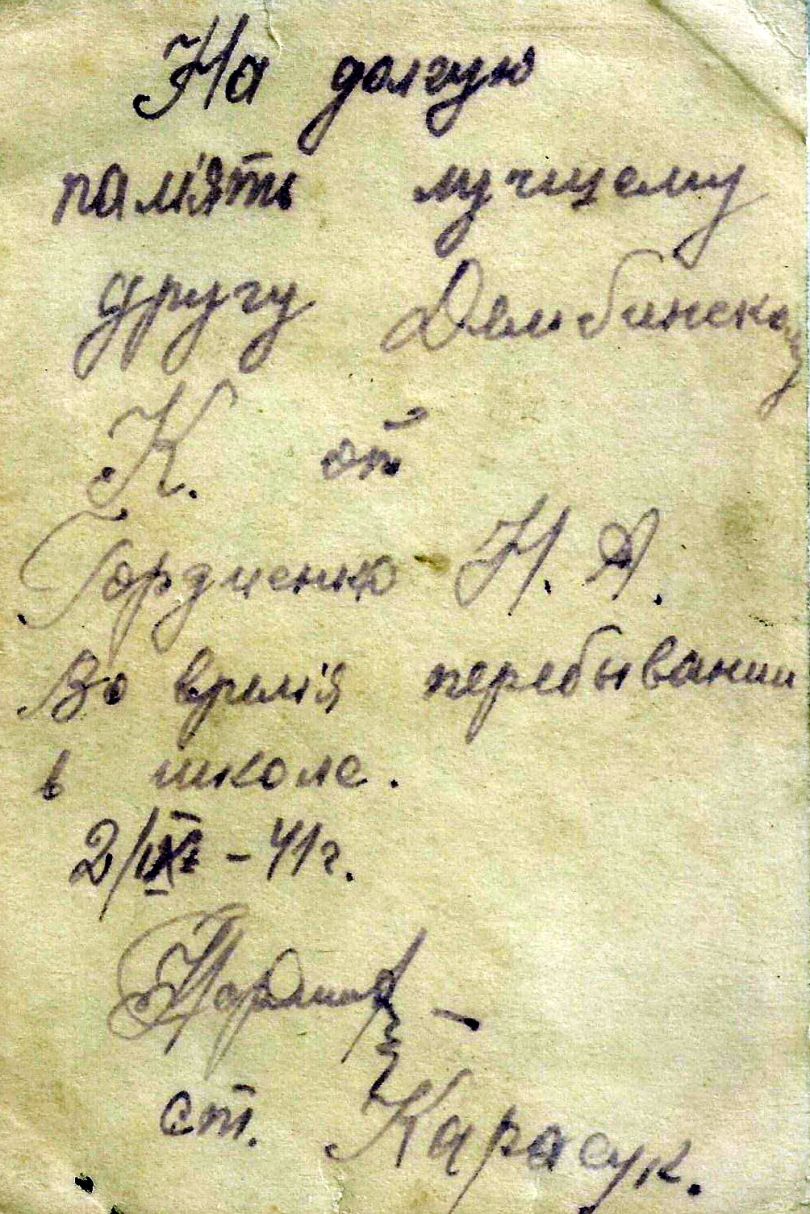 На долгую
пам'ять лучщему
другу Дембинскому
К. от
Гордиенко Н. А.
Во врем'я перебывании
в школе.
2/IX - 41 г.
ст. Карасук.